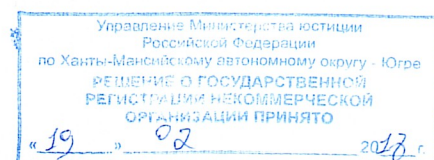 Управление Министерства юстиции
Российской Федерации
по Ханты-Мансийскому автономному округу - Югре
РЕШЕНИЕ О ГОСУДАРСТВЕННОЙ
РЕГИСТРАЦИИ НЕКОММЕРЧЕСКОЙ
ОРГАНИЗАЦИИ ПРИНЯТО
« 19 » 02 2018 г.